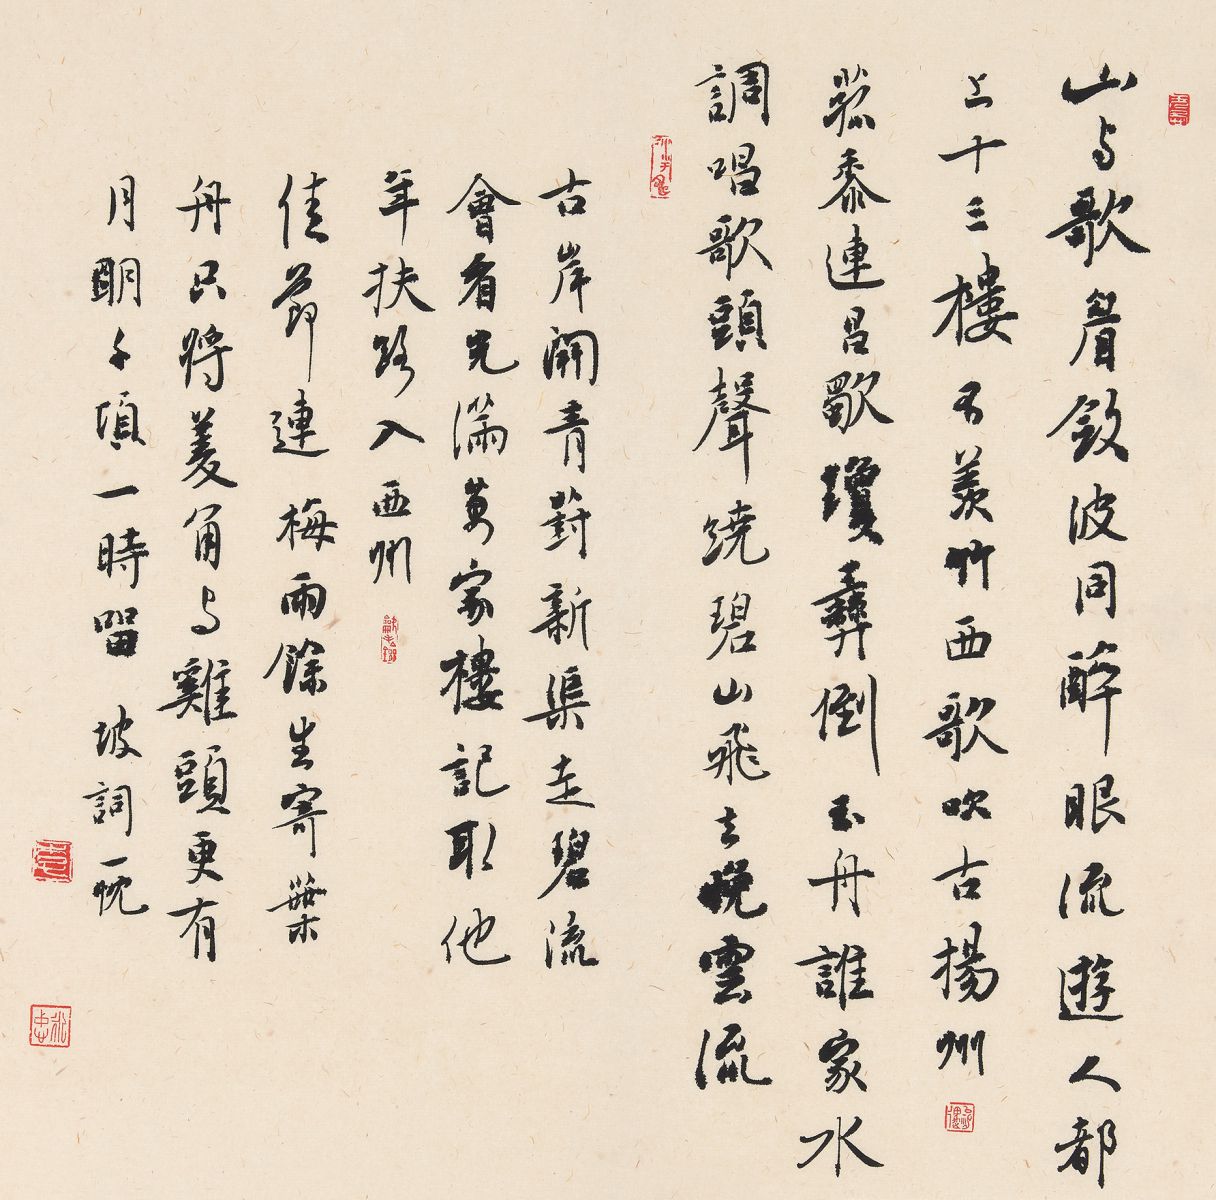 山与歌眉斂波同醉眼流遊人都
上十三樓不羨竹西歌吹古揚州
菰黍連昌歜瓊彝倒玉舟誰家水
調唱歌頭聲繞碧山飛去晚雲流
古岸開青葑新渠走碧流
會看光滿萬家樓記取他
年扶路入西州
佳節連梅雨餘生寄葉
舟只將菱角与雞頭更有
月明千頃一時留 坡詞一